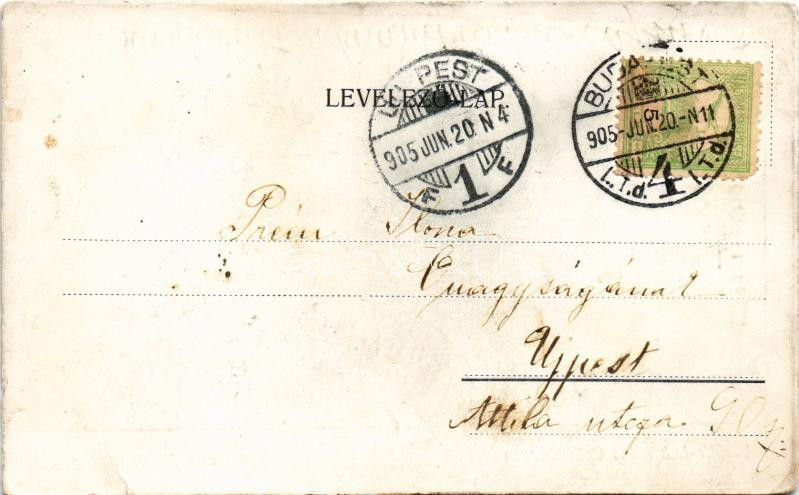 LEVELEZŐ-LAP.
UJPEST
905 JUN. 20 N 4
F 1 F
BUDAPEST
905-JUN. 20.-N11
I. T.d. 4 I. T.d.
5
Prém Ilona
Őnagyságának
Ujpest
Attila utcza